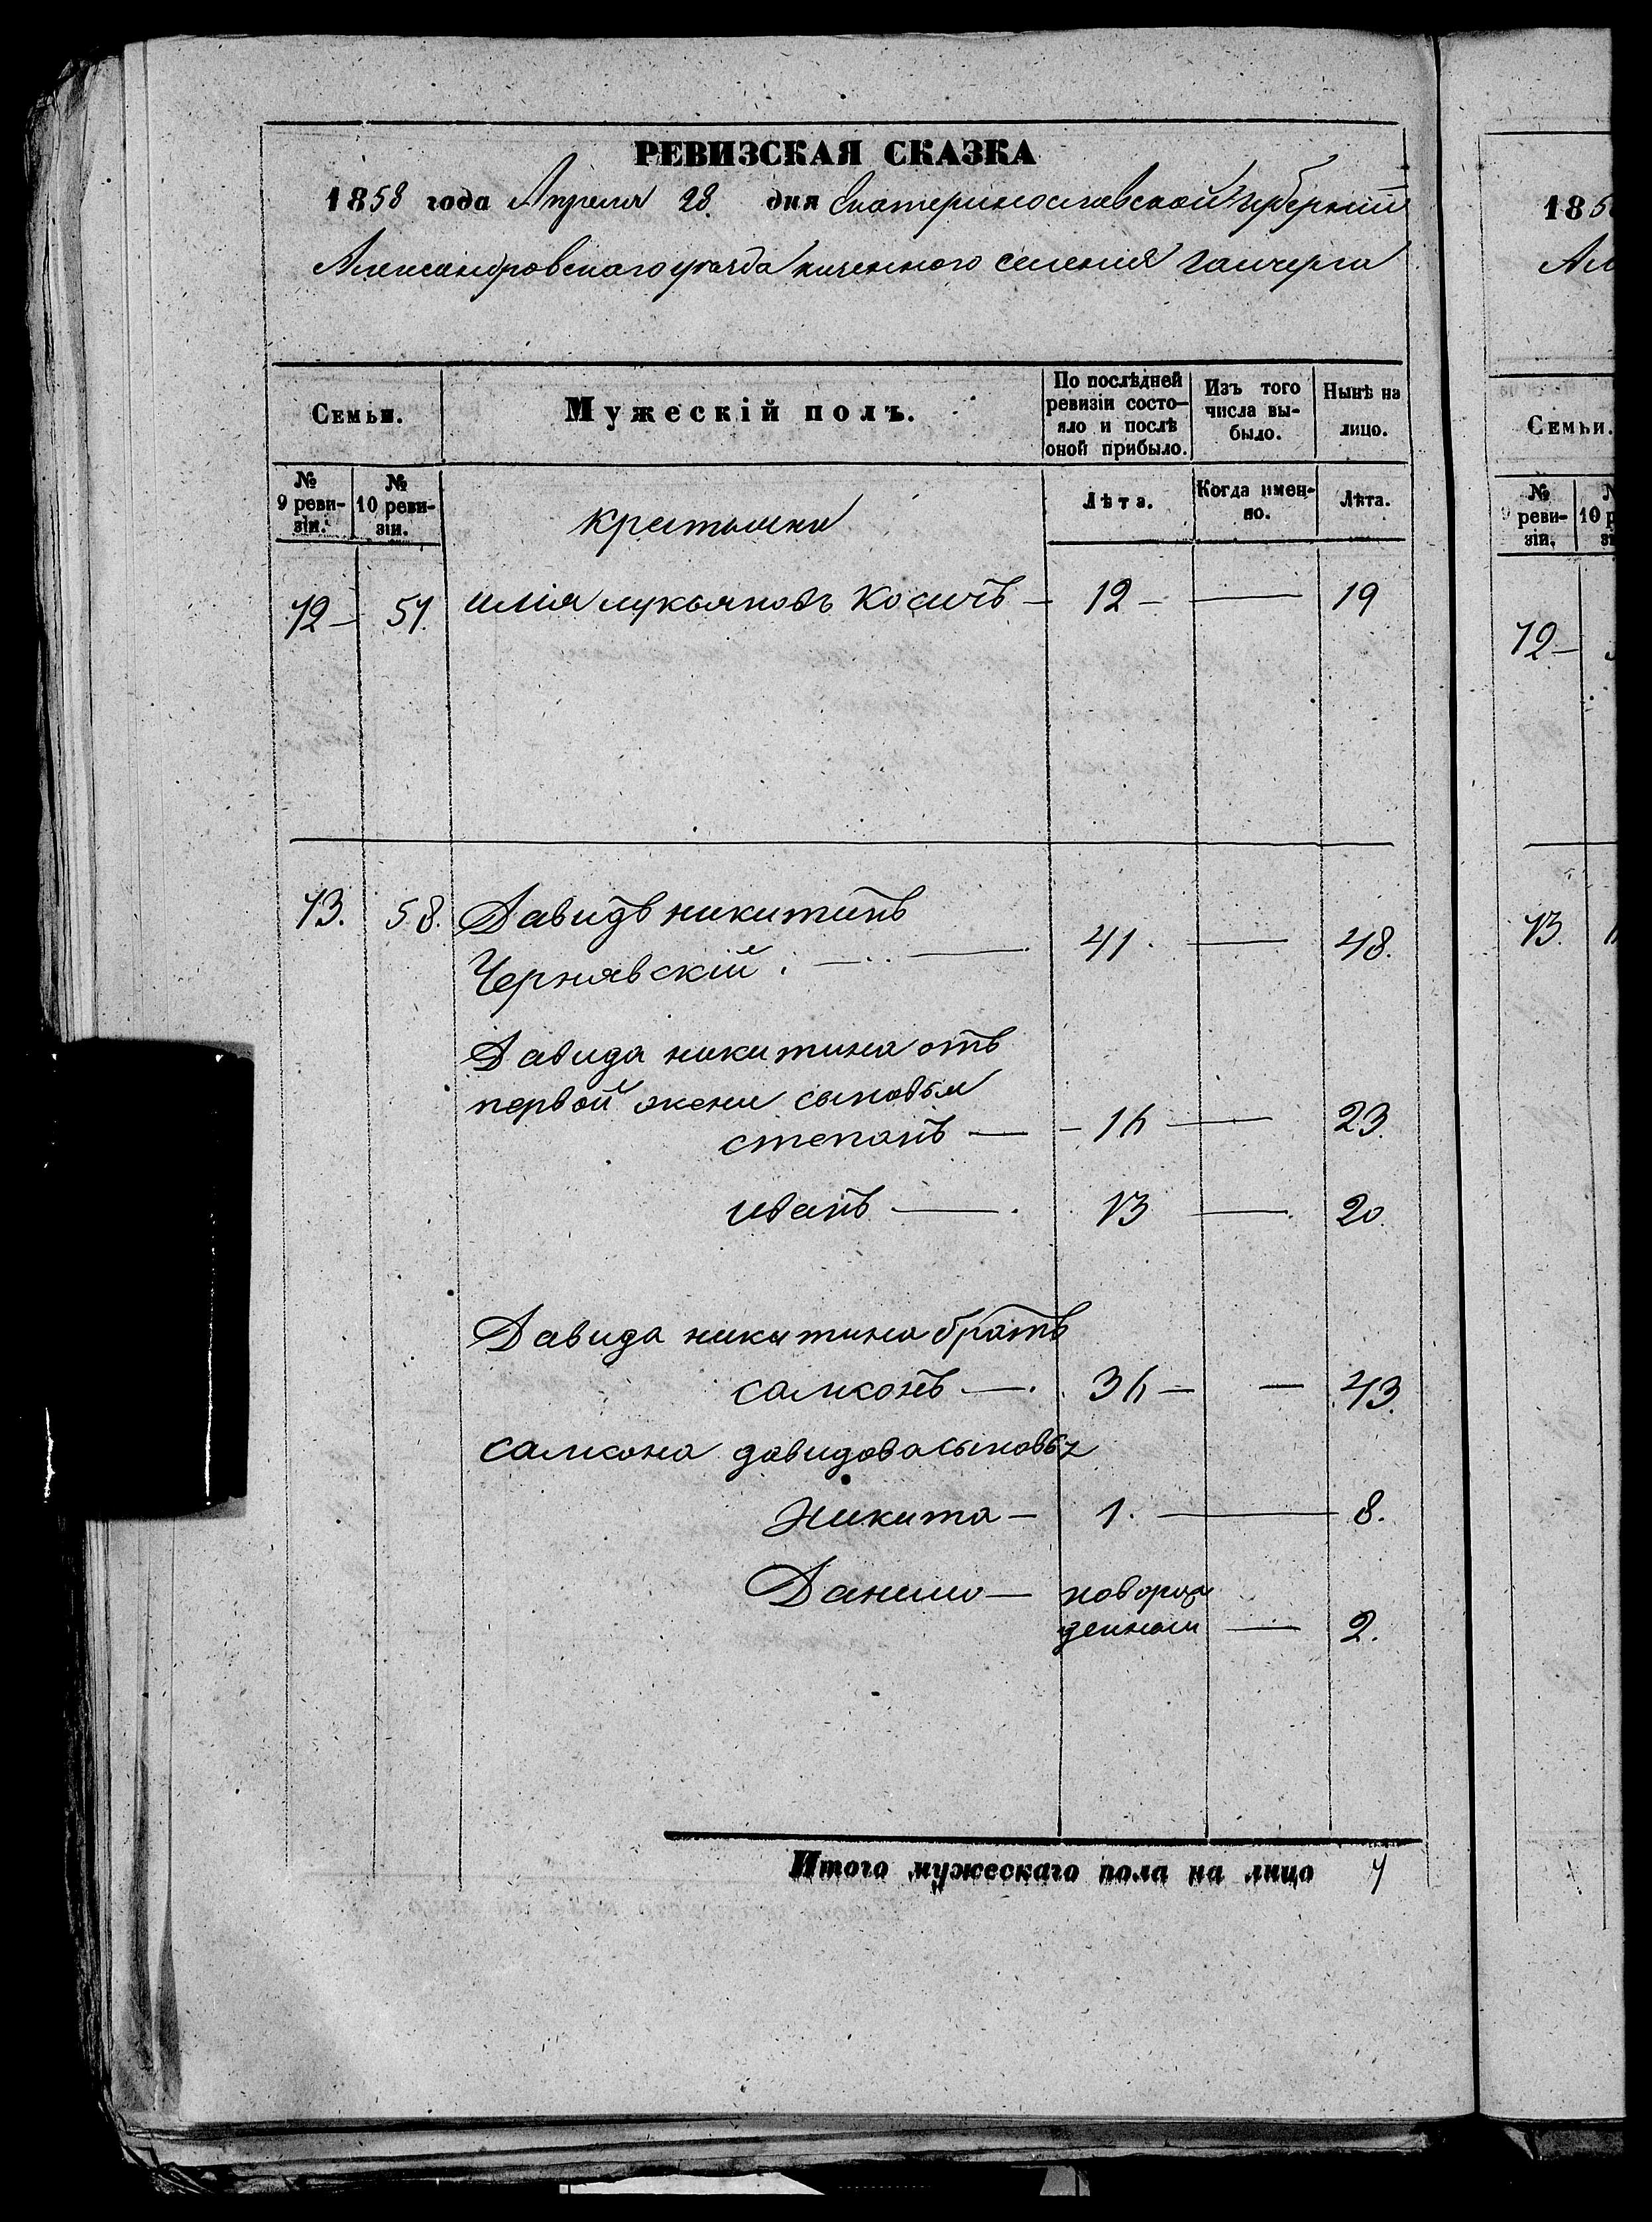 РЕВИЗСКАЯ СКАЗКА
1858 года Апреля 28. дня Екатеринославской Губернии
Александровского уезда казенного селения Гайчерга
Семьи. Мужескій полъ. По послѣдней ревизіи состо- яло и послѣ оной прибыло. Изъ того числа вы- было. Нынѣ на лицо.
№ 9 реви- зіи. № 10 реви- зіи. Лѣта. Когда имен- но. Лѣта.
крестьяни
72 — 57. илия лукьяновъ Косичъ — 12 — — 19
73. 58. Давидъ никитинъ
Чернявскій. — 41. — 48.
Давида никитина отъ
первой жени сыновья
степанъ — 16 — 23.
иванъ — 13 — 20.
Давида никитина братъ
самсонъ — 36 — — 43.
самсона давидова сыновья
Никита — 1. — 8.
Данило — новорож
денной — 2.
Итого мужескаго пола на лицо 7
18 5
Ал
Семьи.
№ 9 реви- зіи. 10 р
72 —
73.